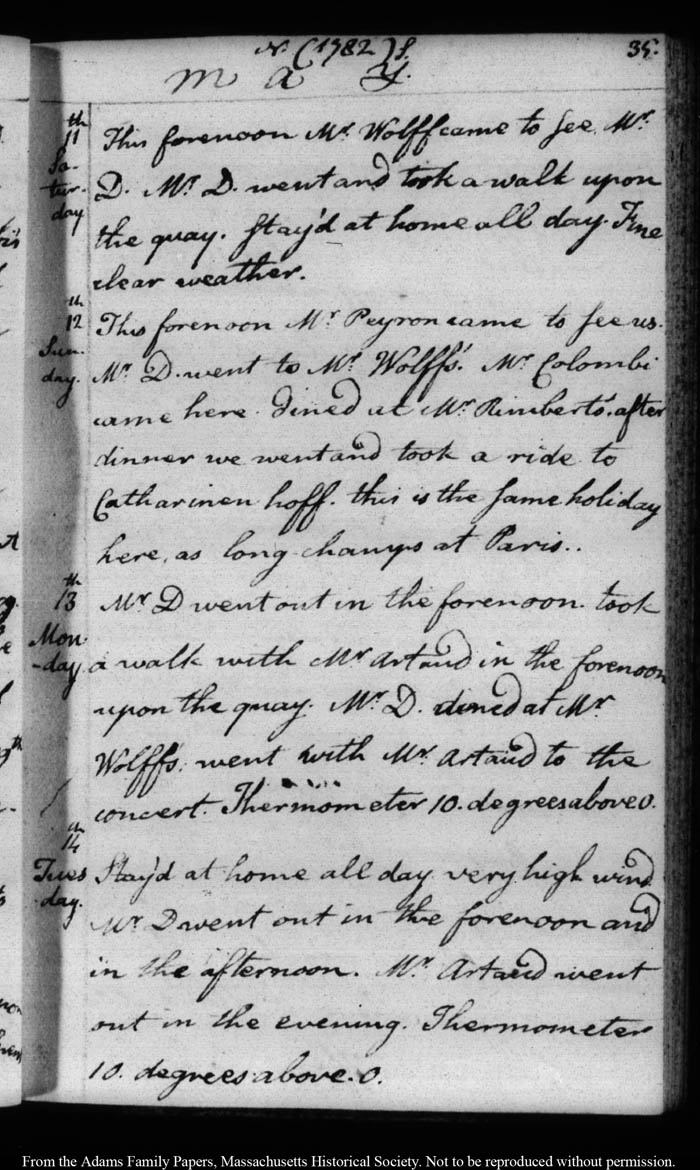 N. (1782) S.
35.
M a y.
11th
Sa-
tur-
day
This forenoon Mr. Wolff came to see Mr.
D. Mr. D. went and took a walk upon
the quay. Stay'd at home all day. Fine
clear weather.
12th
Sun-
day.
This forenoon Mr. Peyron came to see us.
Mr. D. went to Mr. Wolff's. Mr. Colombi
came here. dined at Mr. Rimberto's. after
dinner we went and took a ride to
Catharinen hoff. this is the same holiday
here, as long champs at Paris..
13th
Mon-
-day
Mr. D went out in the forenoon. took
a walk with Mr. Artaud in the forenoon
upon the quay. Mr. D. dined at Mr.
Wolff's. went with Mr. Artaud to the
concert. Thermometer 10. degrees above 0.
14th
Tues
-day.
Stay'd at home all day very high wind
Mr. D went out in the forenoon and
in the afternoon. Mr. Artaud went
out in the evening. Thermometer
10. degrees above. 0.
From the Adams Family Papers, Massachusetts Historical Society. Not to be reproduced without permission.